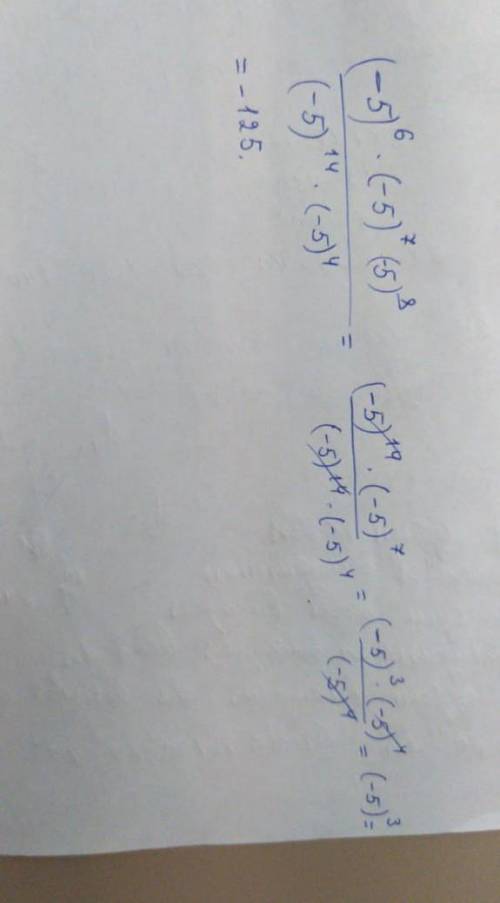 (-5)⁶ · (-5)⁷ (-5)⁸ / (-5)¹⁴ · (-5)⁴ = (-5)¹⁴ · (-5)⁷ / (-5)¹⁴ · (-5)⁴ = (-5)³ · (-5)⁴ / (-5)⁴ = (-5)³ =
= -125.